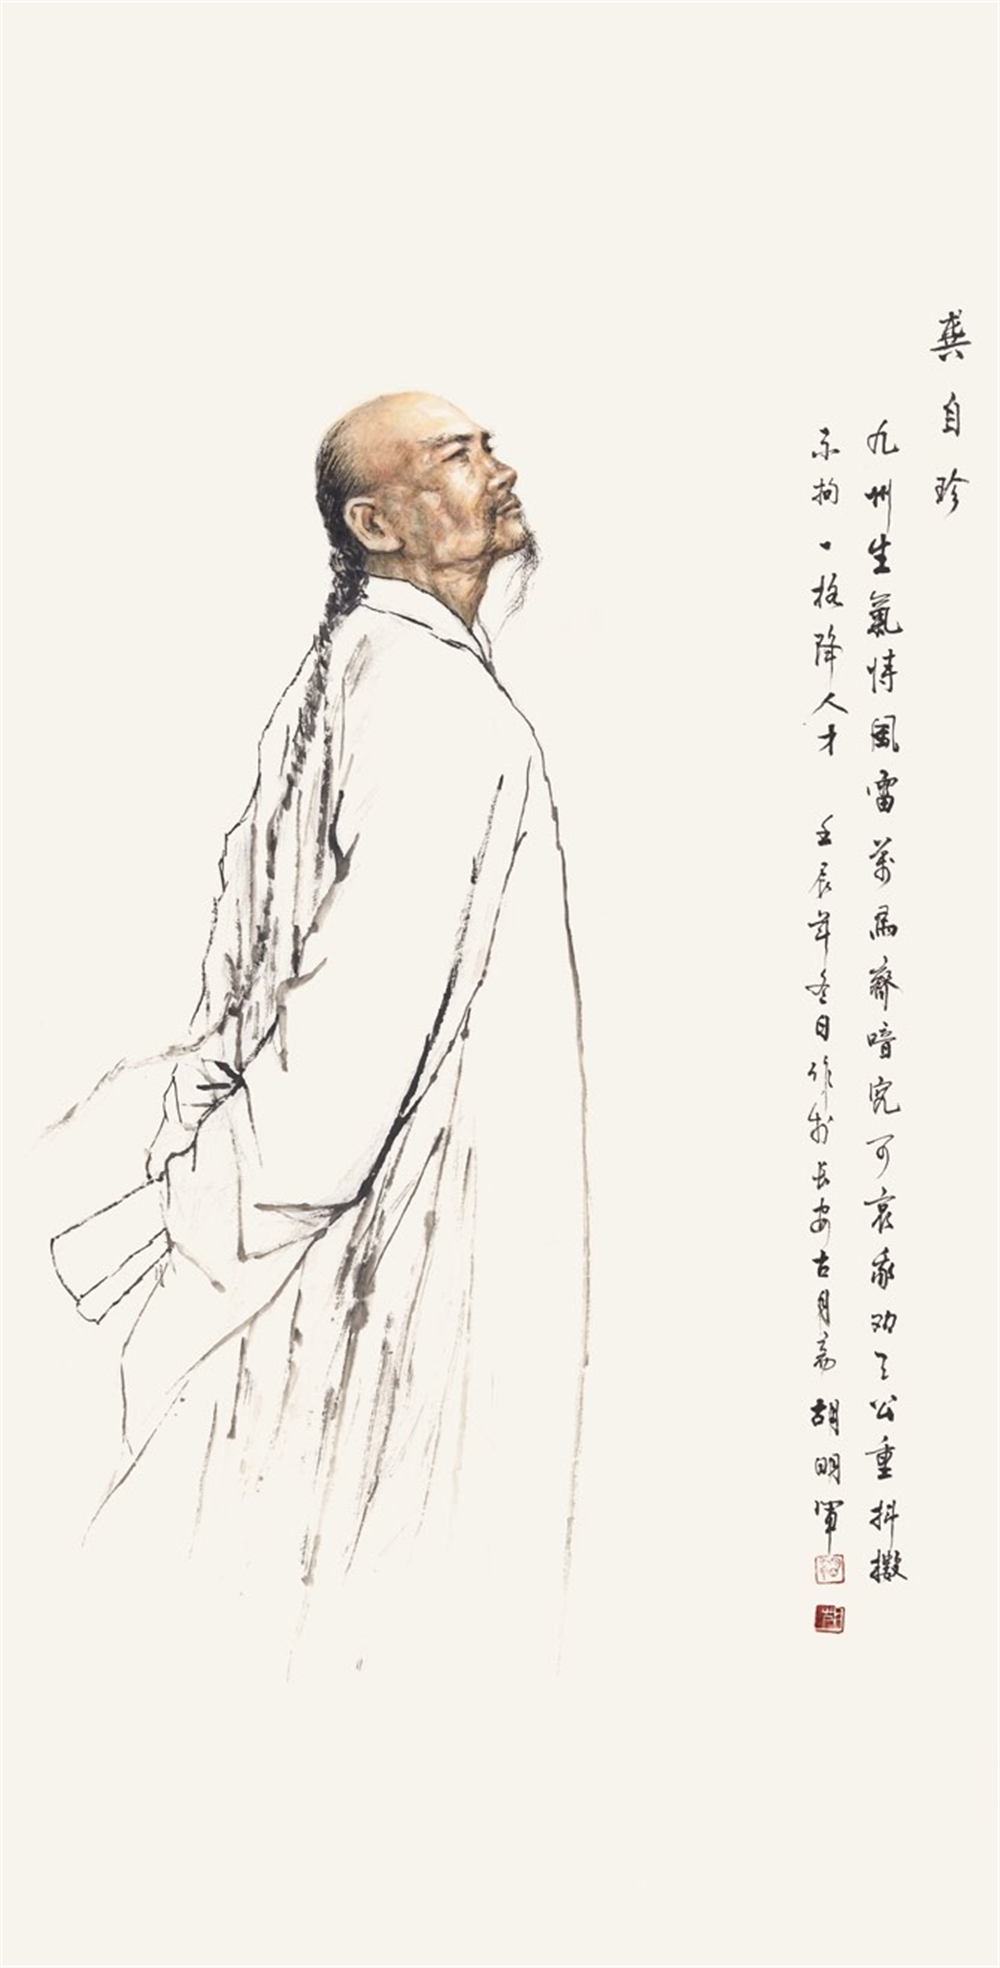 龚自珍
九州生氣恃風雷萬馬齊喑究可哀我劝天公重抖擞
不拘一格降人才 壬辰年冬日作於长安古月斋 胡明军